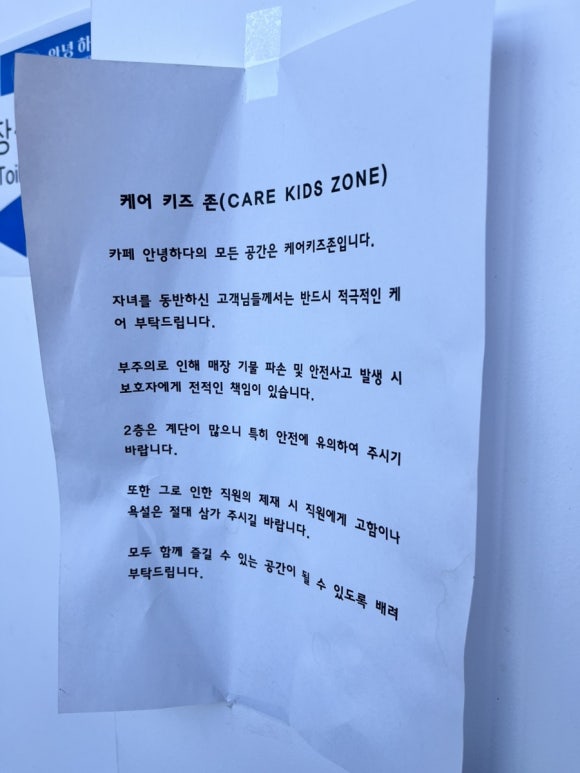 안녕 하
장
Toi
케어 키즈 존(CARE KIDS ZONE)
카페 안녕하다의 모든 공간은 케어키즈존입니다.
자녀를 동반하신 고객님들께서는 반드시 적극적인 케
어 부탁드립니다.
부주의로 인해 매장 기물 파손 및 안전사고 발생 시
보호자에게 전적인 책임이 있습니다.
2층은 계단이 많으니 특히 안전에 유의하여 주시기
바랍니다.
또한 그로 인한 직원의 제재 시 직원에게 고함이나
욕설은 절대 삼가 주시길 바랍니다.
모두 함께 즐길 수 있는 공간이 될 수 있도록 배려
부탁드립니다.